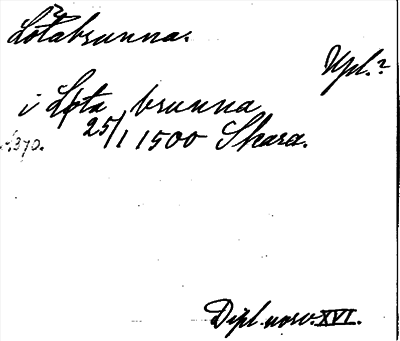 Lötabrunna.
Upl.?
i Løta brunna
25/1 1500 Skara.
A370.
Dipl. norv. XVI.